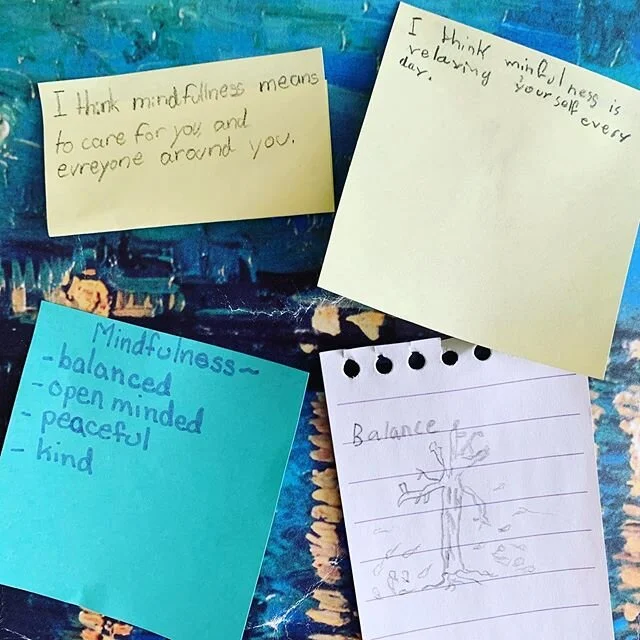 I think mindfullness means
to care for you, and
evreyone around you.
I think minfulness is
relaxing yourself every
day.
Mindfulness~
-balanced
-open minded
- peaceful
- kind
Balance